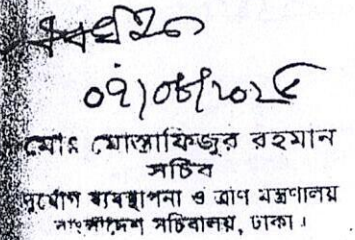 ০৭/০৮/২০২৫
মোঃ মোস্তাফিজুর রহমান
সচিব
দুর্যোগ ব্যবস্থাপনা ও ত্রাণ মন্ত্রণালয়
বাংলাদেশ সচিবালয়, ঢাকা।